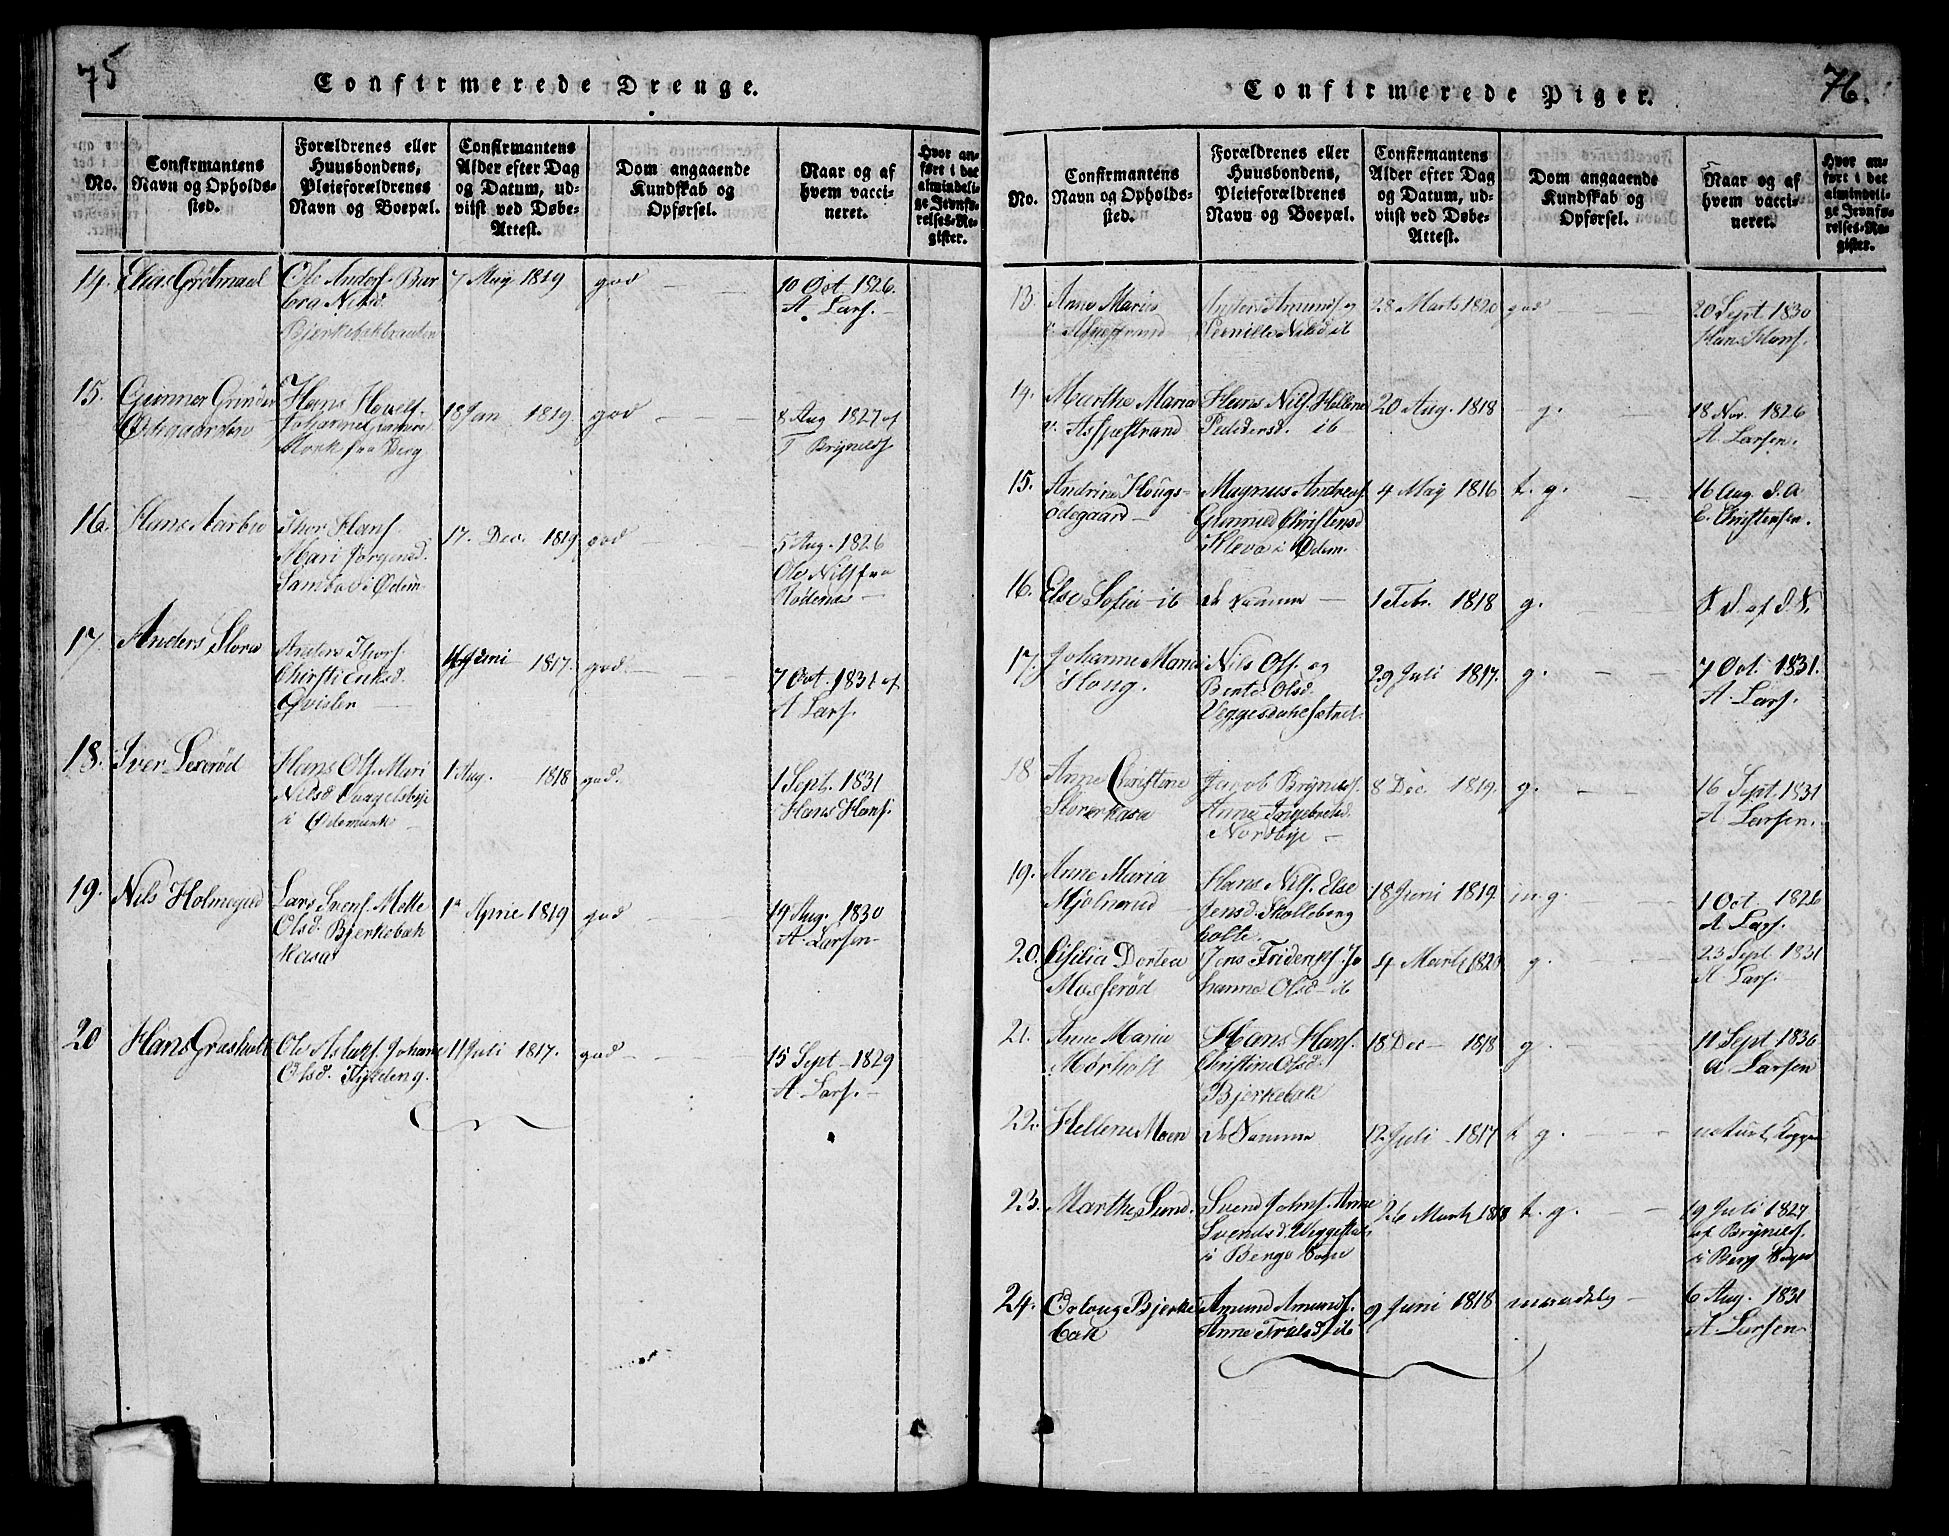 75
Confirmerede Drenge.
No.
Confirmantens
Navn og Opholds-
sted.
Forældrenes eller
Huusbondens,
Pleieforældrenes
Navn og Boepæl.
Confirmantens
Alder efter Dag
og Datum, ud-
viist ved Døbe-
Attest.
Dom angaaende
Kundskab og
Opførsel.
Naar og af
hvem vacci-
neret.
Hvor an-
ført i det
almindeli-
ge Jevnfø-
relses-Re-
gister.
14. Elias Grølmael
Ole Anders. Bar
bra Nilsd.
Bjerkebekbraaten
7 May 1819
god
10 Oct 1826.
A. Lars.
15. Gunner Grinder
Ødegaarden
Hans Hovels.
fra Berg
18 Jan 1819
god
8 Aug 1827 af
T Brynilds.
16. Hans Aarbu
Thor Hans.
Mari Jørgensd.
Sambøl i Ødem.
17. Dec. 1819
god
5 Aug. 1826
Ole Nils. fra
Rødenes
17. Anders Flora
Anders Thors.
Chirsti Eriksd.
Qvislen
Juni 1817.
god
7 Oct. 1831 af
A Lars.
18. Iver Lexerød
Hans Ols. Mari
Nilsd Vaagelsbye
i Ødemark
1 Aug. 1818
god.
1 Sept. 1831
Hans Hans.
19. Nils Holmegied
Lars Svens. Mette
Olsd. Bjerkebæk
Hasa
1 Aprie 1819
god
19 Aug. 1830
A. Larsen
20 Hans Grasholt
Ole Aslaks. Johane
Olsd.
11 Juli 1817.
god
15 Sept 1829
A Lars.
76.
Confirmerede Piger.
No.
Confirmantens
Navn og Opholds-
sted.
Forældrenes eller
Huusbondens,
Pleieforældrenes
Navn og Boepæl.
Confirmantens
Alder efter Dag
og Datum, ud-
viist ved Døbe-
Attest.
Dom angaaende
Kundskab og
Opførsel.
Naar og af
hvem vacci-
neret.
Hvor an-
ført i det
almindeli-
ge Jevnfø-
relses-Re-
gister.
13. Anne Maria
Anders Amunds. og
Pernille Nilsd ib
28 Marts 1820
god
20 Sept. 1830
Hans Hans.
14. Marthe Maria
v. Aspestrand
Hans Nils. Hellene
Pedersd. ib
20 Aug. 1818
g.
18 Nov. 1826
A. Larsen.
15. Andrine Hougs-
ødegaard
Magnus Andreas.
Gunnild Christensd
Kleva i Ødem.
4 May 1816
t. g.
16 Aug. d. A
C. Christensen.
16. Else Sofia ib
de Samme
1 Febr. 1818
g.
d. d. af d. S.
17. Johanne Maria
Houg.
Nils Ols. og
Berte Olsd.
29 Juli 1817.
g.
7 Oct. 1831.
A Lars.
18 Anne Christine
Storerkasa
Jacob Brynilds.
Anne Ingebretsd.
Nordbye
8 Dec. 1819.
g.
16 Sept. 1831
A Larsen.
19. Anne Maria
Mjølnerud
Hans Nils. Else
Jensd. Skolleborg
holte.
18 Juni 1819.
m. g.
1 Oct. 1826
A Lars.
20. Cisilia Dortea
Mosserød
Jens Friderichs. Jo
hanne Olsd ib
4 Marts 1820
g.
23 Sept 1831
A Lars.
21. Anne Maria
Mørholt
Hans Hans.
Christine Olsd.
Bjerkebæk
18 Dec 1818
g.
11 Sept 1830
A Larsen
22. Hellene Moen
de Samme
12 Juli 1817
t g.
naturl. Kopper
23. Marthe Lund.
Svend Johns. Anne
Svendsd. Veggestad
i Bergs Sogn
26 Marts 1818
t. g.
19 Juli 1827
af Brynilds.
i Berg Sogn
24. Orloug Bjerke
bæk
Amund Amunds.
Anne Trulsd. ib
9 Juni 1818
maadelig
6 Aug. 1831
A Larsen